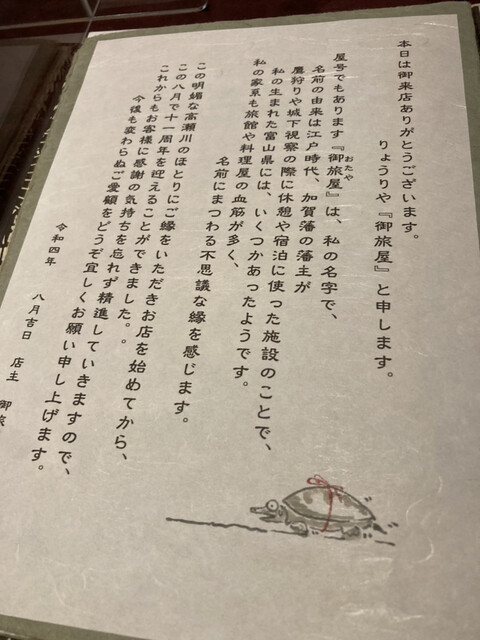 本日は御来店ありがとうございます。
りょうりや『御旅屋』と申します。
おたや
屋号でもあります『御旅屋』は、私の名字で、
名前の由来は江戸時代、加賀藩の藩主が
鷹狩りや城下視察の際に休憩や宿泊に使った施設のことで、
私の生まれた富山県には、いくつかあったようです。
私の家系も旅館や料理屋の血筋が多く、
名前にまつわる不思議な縁を感じます。
この明媚な高瀬川のほとりにご縁をいただきお店を始めてから、
この八月で十一周年を迎えることができました。。
これからもお客様に感謝の気持ちを忘れず精進していきますので、
今後も変わらぬご愛顧をどうぞ宜しくお願い申し上げます。
令和四年 八月吉日 店主 御旅